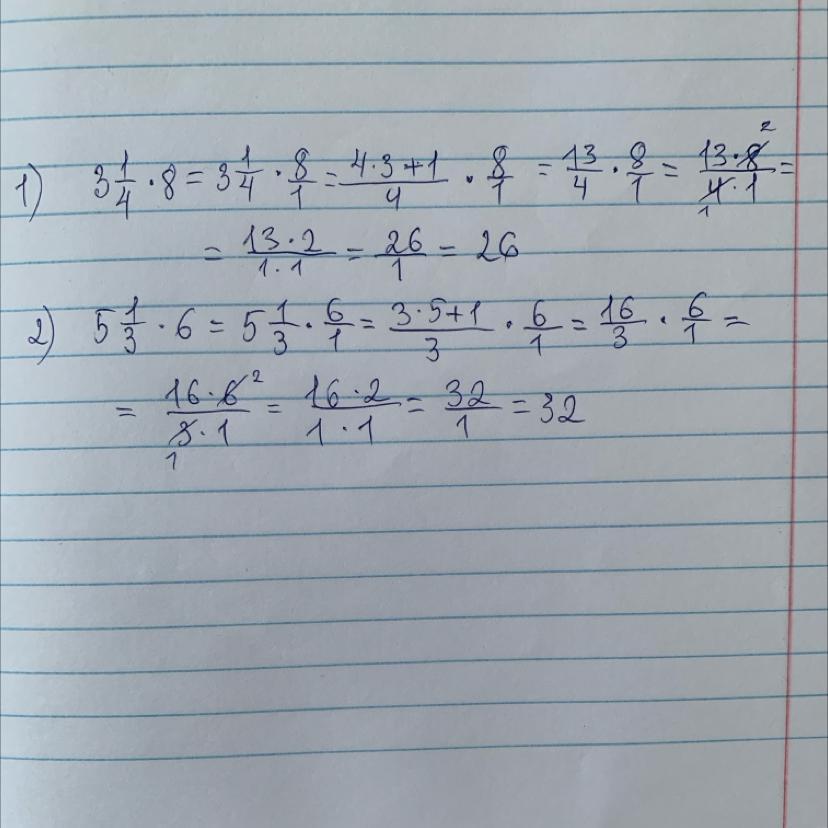 1) 3 1/4 · 8 = 3 1/4 · 8/1 = (4·3+1)/4 · 8/1 = 13/4 · 8/1 = (13·8̸ ²)/(4̸ ₁·1) =
= (13·2)/(1·1) = 26/1 = 26
2) 5 1/3 · 6 = 5 1/3 · 6/1 = (3·5+1)/3 · 6/1 = 16/3 · 6/1 =
= (16·6̸ ²)/(3̸ ₁·1) = (16·2)/(1·1) = 32/1 = 32